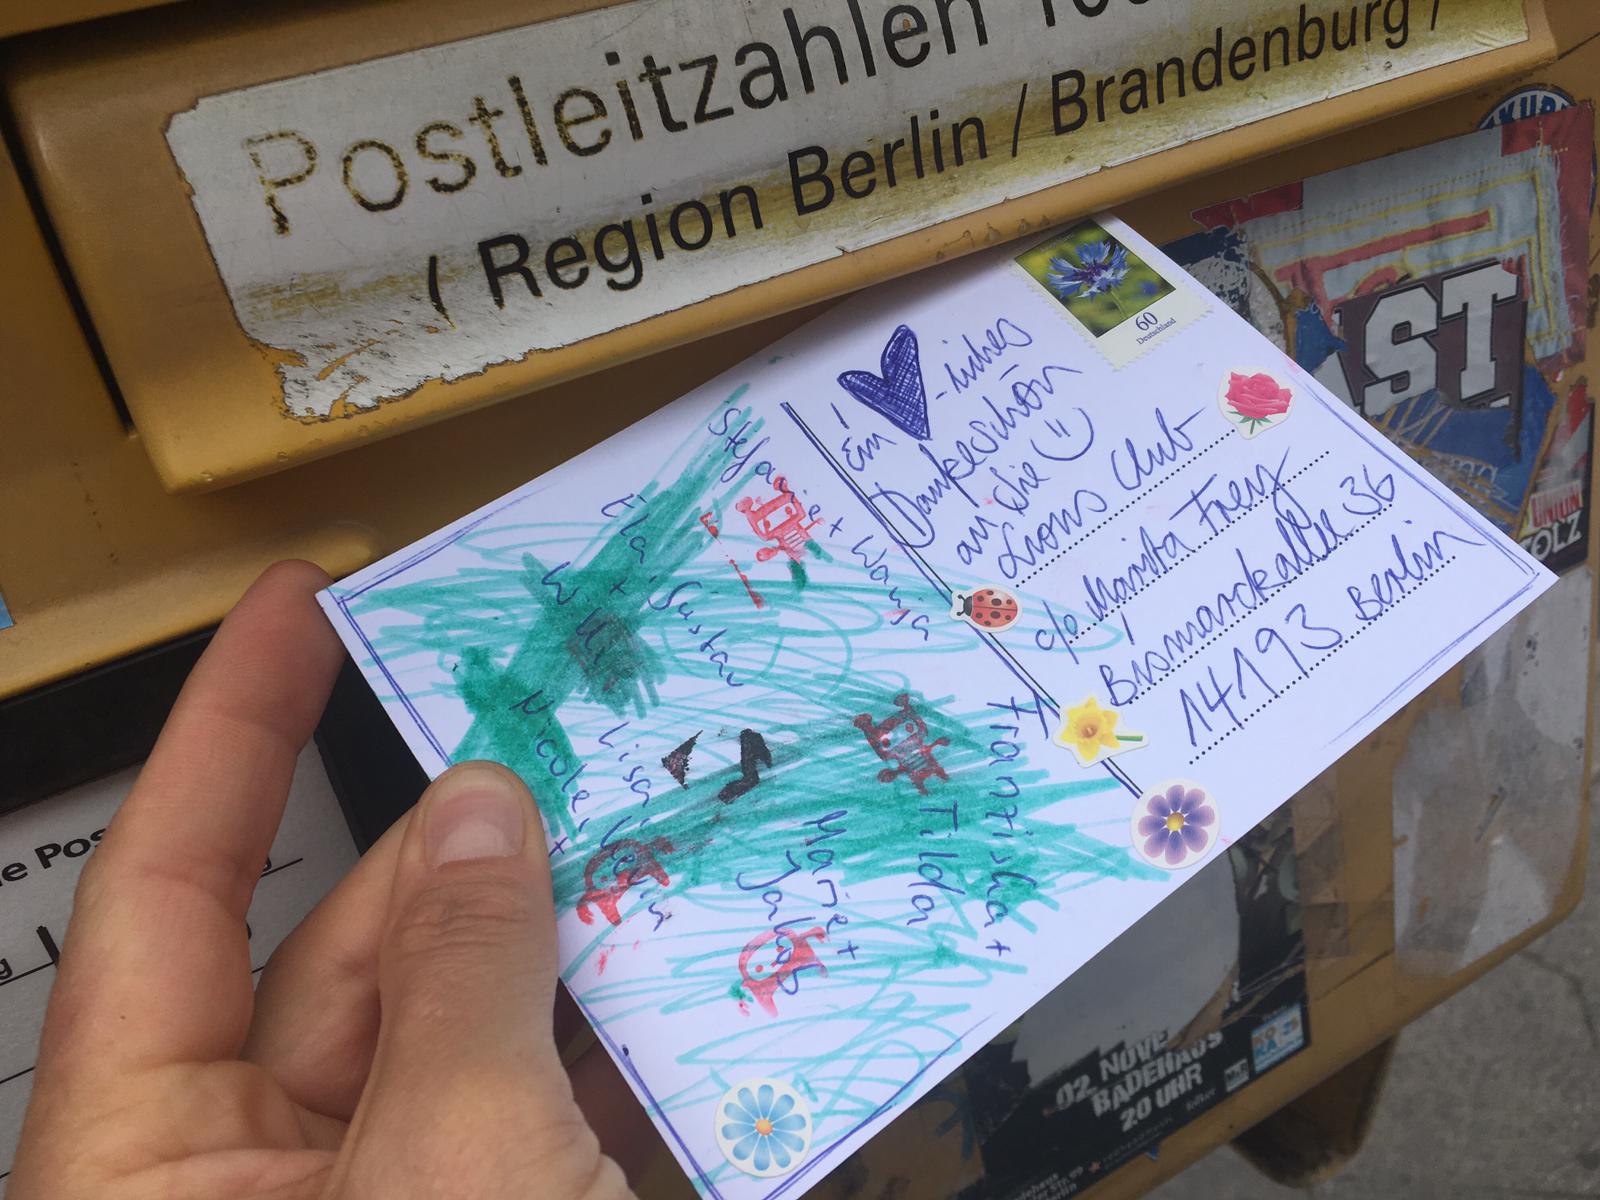 Postleitzahlen
/ Region Berlin / Brandenburg /
60
Deutschland
Ein -liches
Dankeschön
an die
Lions Club
c/o Marita Frenz
Bismarckallee 36
14193 Berlin
Stefanie + Wanja
Ela, Gustav
+ Willi
Lisa,
Nicole, +
Franziska +
Tilda
Marie +
Jakob
ST
UNION
02 NOVE
BADEHAUS
20 UHR